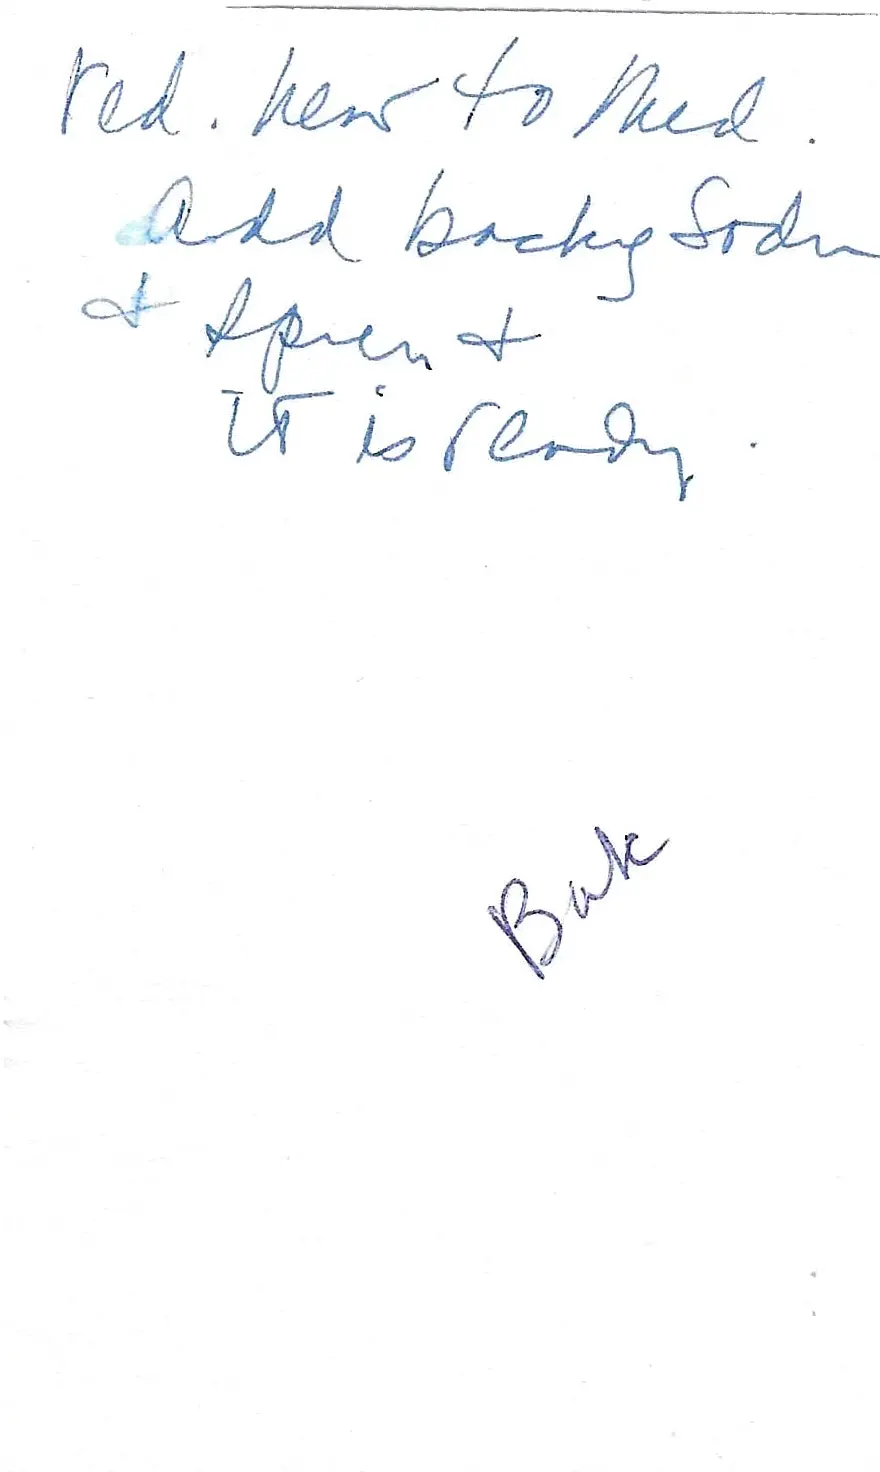 red. heat to Med.
Add backing Soda
& spices &
it is ready.
Back